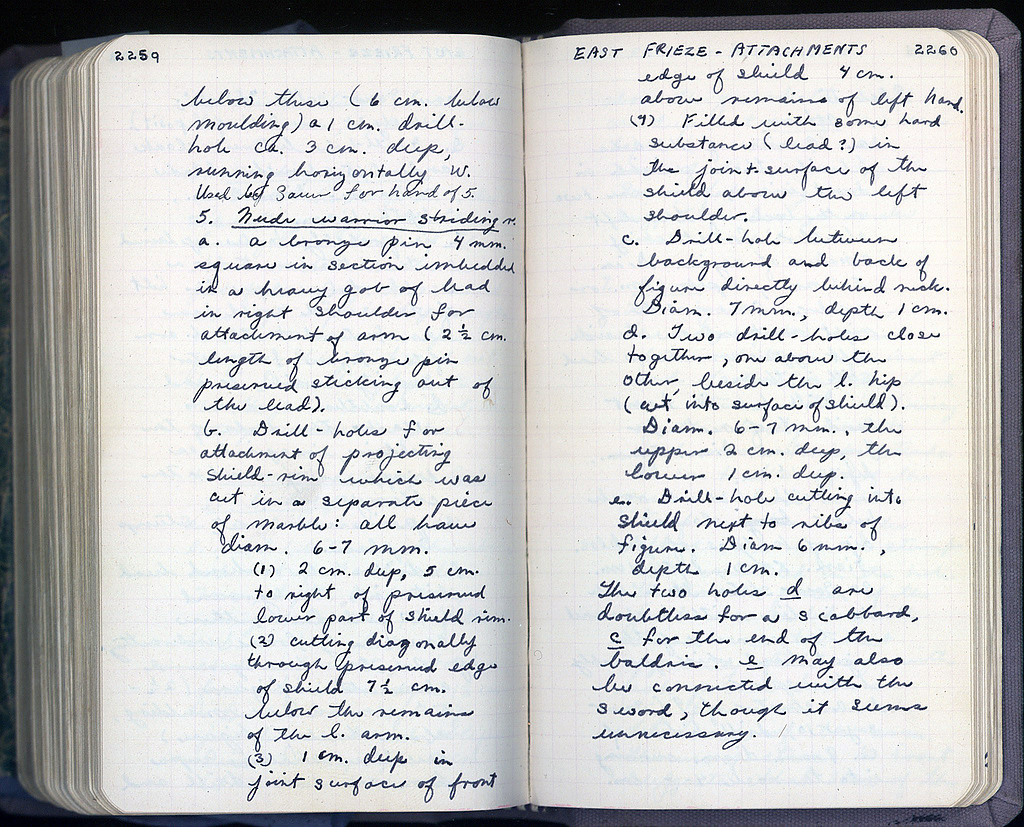 2259
below these (6 cm. below
moulding) a 1 cm. drill-
hole ca. 3 cm. deep,
running horizontally W.
Used by Sauer for hand of 5.
5. Nude warrior striding r.
a. a bronze pin 4 mm.
square in section imbedded
in a heavy gob of lead
in right shoulder for
attachment of arm (2 ½ cm.
length of bronze pin
preserved sticking out of
the lead).
b. Drill-holes for
attachment of projecting
shield-rim which was
cut in a separate piece
of marble: all have
diam. 6-7 mm.
(1) 2 cm. deep, 5 cm.
to right of preserved
lower part of shield rim.
(2) cutting diagonally
through preserved edge
of shield 7 ½ cm.
below the remains
of the l. arm.
(3) 1 cm. deep in
joint surface of front
EAST FRIEZE - ATTACHMENTS 2260
edge of shield 4 cm.
above remains of left hand.
(4) Filled with some hard
substance (lead?) in
the joint-surface of the
shield above the left
shoulder.
c. Drill-hole between
background and back of
figure directly behind neck.
Diam. 7 mm., depth 1 cm.
d. Two drill-holes close
together, one above the
other, beside the l. hip
(cut into surface of shield).
Diam. 6-7 mm., the
upper 2 cm. deep, the
lower 1 cm. deep.
e. Drill-hole cutting into
shield next to ribs of
figure. Diam 6 mm.,
depth 1 cm.
The two holes d are
doubtless for a scabbard,
c for the end of the
baldric. e may also
be connected with the
sword, though it seems
unnecessary.